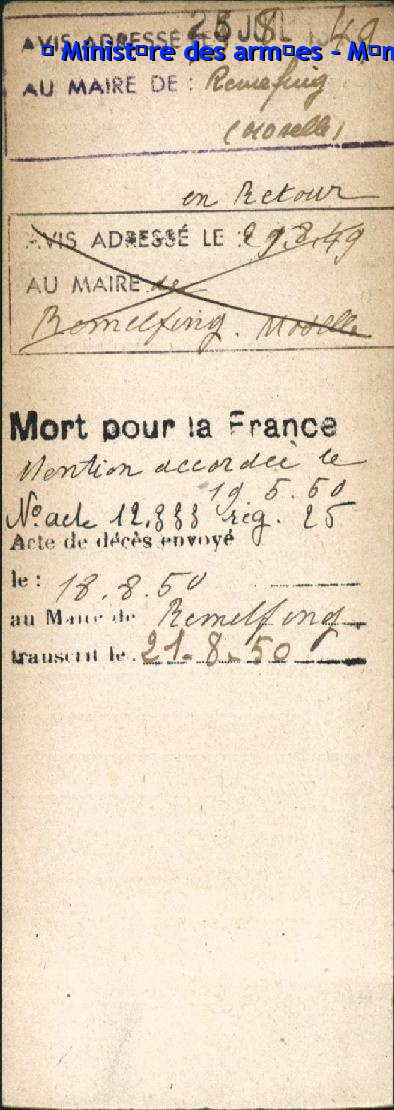 AVIS ADRESSÉ LE 25 JUIL 1949
© Ministère des armées - Mém
AU MAIRE DE : Remelfing
(Moselle)
en Retour
AVIS ADRESSÉ LE : 29.8.49
AU MAIRE de
Remelfing. Moselle
Mort pour la France
Mention accordée le
19.5.50
No. acte 12.888 reg. 25
Acte de décès envoyé
le : 18.8.50
au Maire de Remelfing.
transcrit le 21-8-50